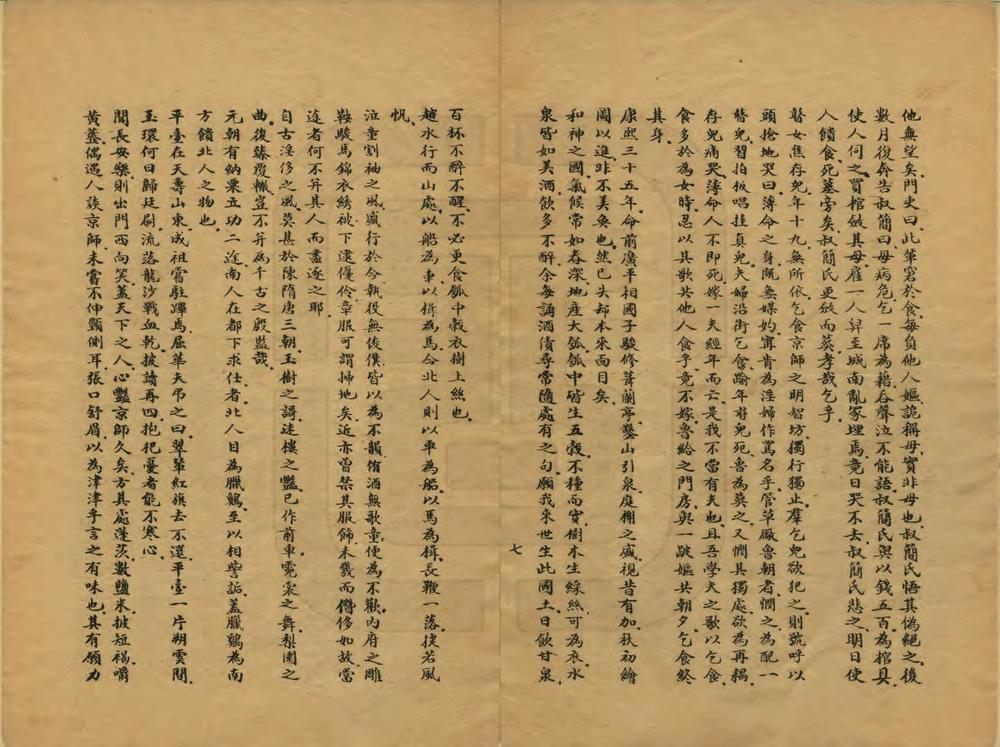 他無望矣門史曰此華窮於食每負他人嫗詭稱母實非母也叔簡氏悟其偽絕之後
數月復奔告叔簡曰母病危乞一席為藉吞聲泣不能語叔簡氏與以錢五百為棺具
使人伺之買棺斂其母雇一人舁至城南亂冢埋焉竟日哭不去叔簡氏悲之明日使
人饋食死墓旁矣叔簡氏更斂而葬孝哉乞乎
瞽女焦存兒年十九無所依乞食京師之明智坊獨行獨止羣乞兒欲犯之則號呼以
頭搶地哭曰薄命之身既無媒妁寧肯為淫婦作罵名乎管草廠魯朝者憫之為配一
瞽兒習拍板唱挂真兒夫婦沿街乞食踰年瞽兒死魯為葬之又憫其獨處欲為再耦
存兒痛哭薄命人不即死嫁一夫經年而亡是我不當有夫也且吾學夫之歌以乞食
食多於為女時忍以其歌共他人食乎竟不嫁魯給之門房與一跛嫗共朝夕乞食終
其身
康熙三十五年命前廣平相國子駿修葺蘭亭鑿山引泉庭榭之盛視昔有加秋初繪
圖以進非不美奐也然已失却本來面目矣
和神之國氣候常如春深地產大瓠瓠中皆生五穀不種而實樹木生綵絲可為衣水
泉皆如美酒飲多不醉余每誦酒債尋常隨處有之句願我來世生此國土日飲甘泉
七
百杯不醉不醒不必更食瓠中穀衣樹上絲也
越水行而山處以船為車以楫為馬今北人則以車為船以馬為楫長鞭一落後若風
帆
泣童割袖之風盛行於今執役無俊僕皆以為不韻侑酒無歌童便為不歡內府之雕
鞍駿馬錦衣綉被下逮優伶章服可謂掃地矣近亦曾禁其服飾未幾而僭侈如故當
途者何不并其人而盡逐之耶
自古淫侈之風莫甚於陳隋唐三朝玉樹之謌迷樓之豔已作前車霓裳之舞梨園之
曲復臻覆轍豈不并為千古之殷監哉
元朝有納粟立功二途南人在都下求仕者北人目為臘鷄至以相訾詬蓋臘鷄為南
方饋北人之物也
平臺在天壽山東成祖嘗駐蹕焉屈華夫弔之曰翠輦紅旗去不還平臺一片朔雲間
玉環何日歸廷尉流落龍沙戰血乾披讀再四抱杞憂者能不寒心
聞長安樂則出門西向笑蓋天下之人心豔京師久矣方其處蓬茨數鹽米披短褐嚼
黃虀偶遇人談京師未嘗不伸頸側耳張口舒眉以為津津乎言之有味也其有願力